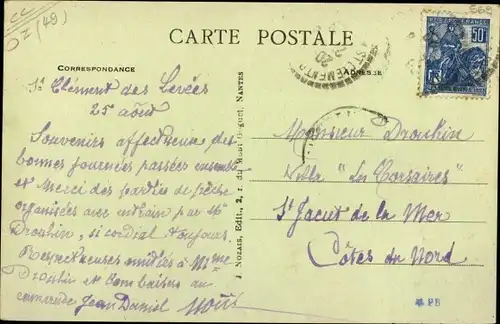 CARTE POSTALE
CORRESPONDANCE
ADRESSE
St Clément des Levées
25 août
Souvenirs affectueux des
bonnes journées passées ensemble
et Merci des parties de pêche
organisées avec entrain par Mr
Drouhin, si cordial toujours.
Respectueuses amitiés à Mme
Drouhin et bons baisers au
camarade Jean Daniel
J. NOZAIS, Edit., 2, r. du NANTES
Monsieur Drouhin
Villa "Les Corsaires"
St Jacut de la Mer
Côtes du Nord
50c
ST CLEMENT
OZ (49)